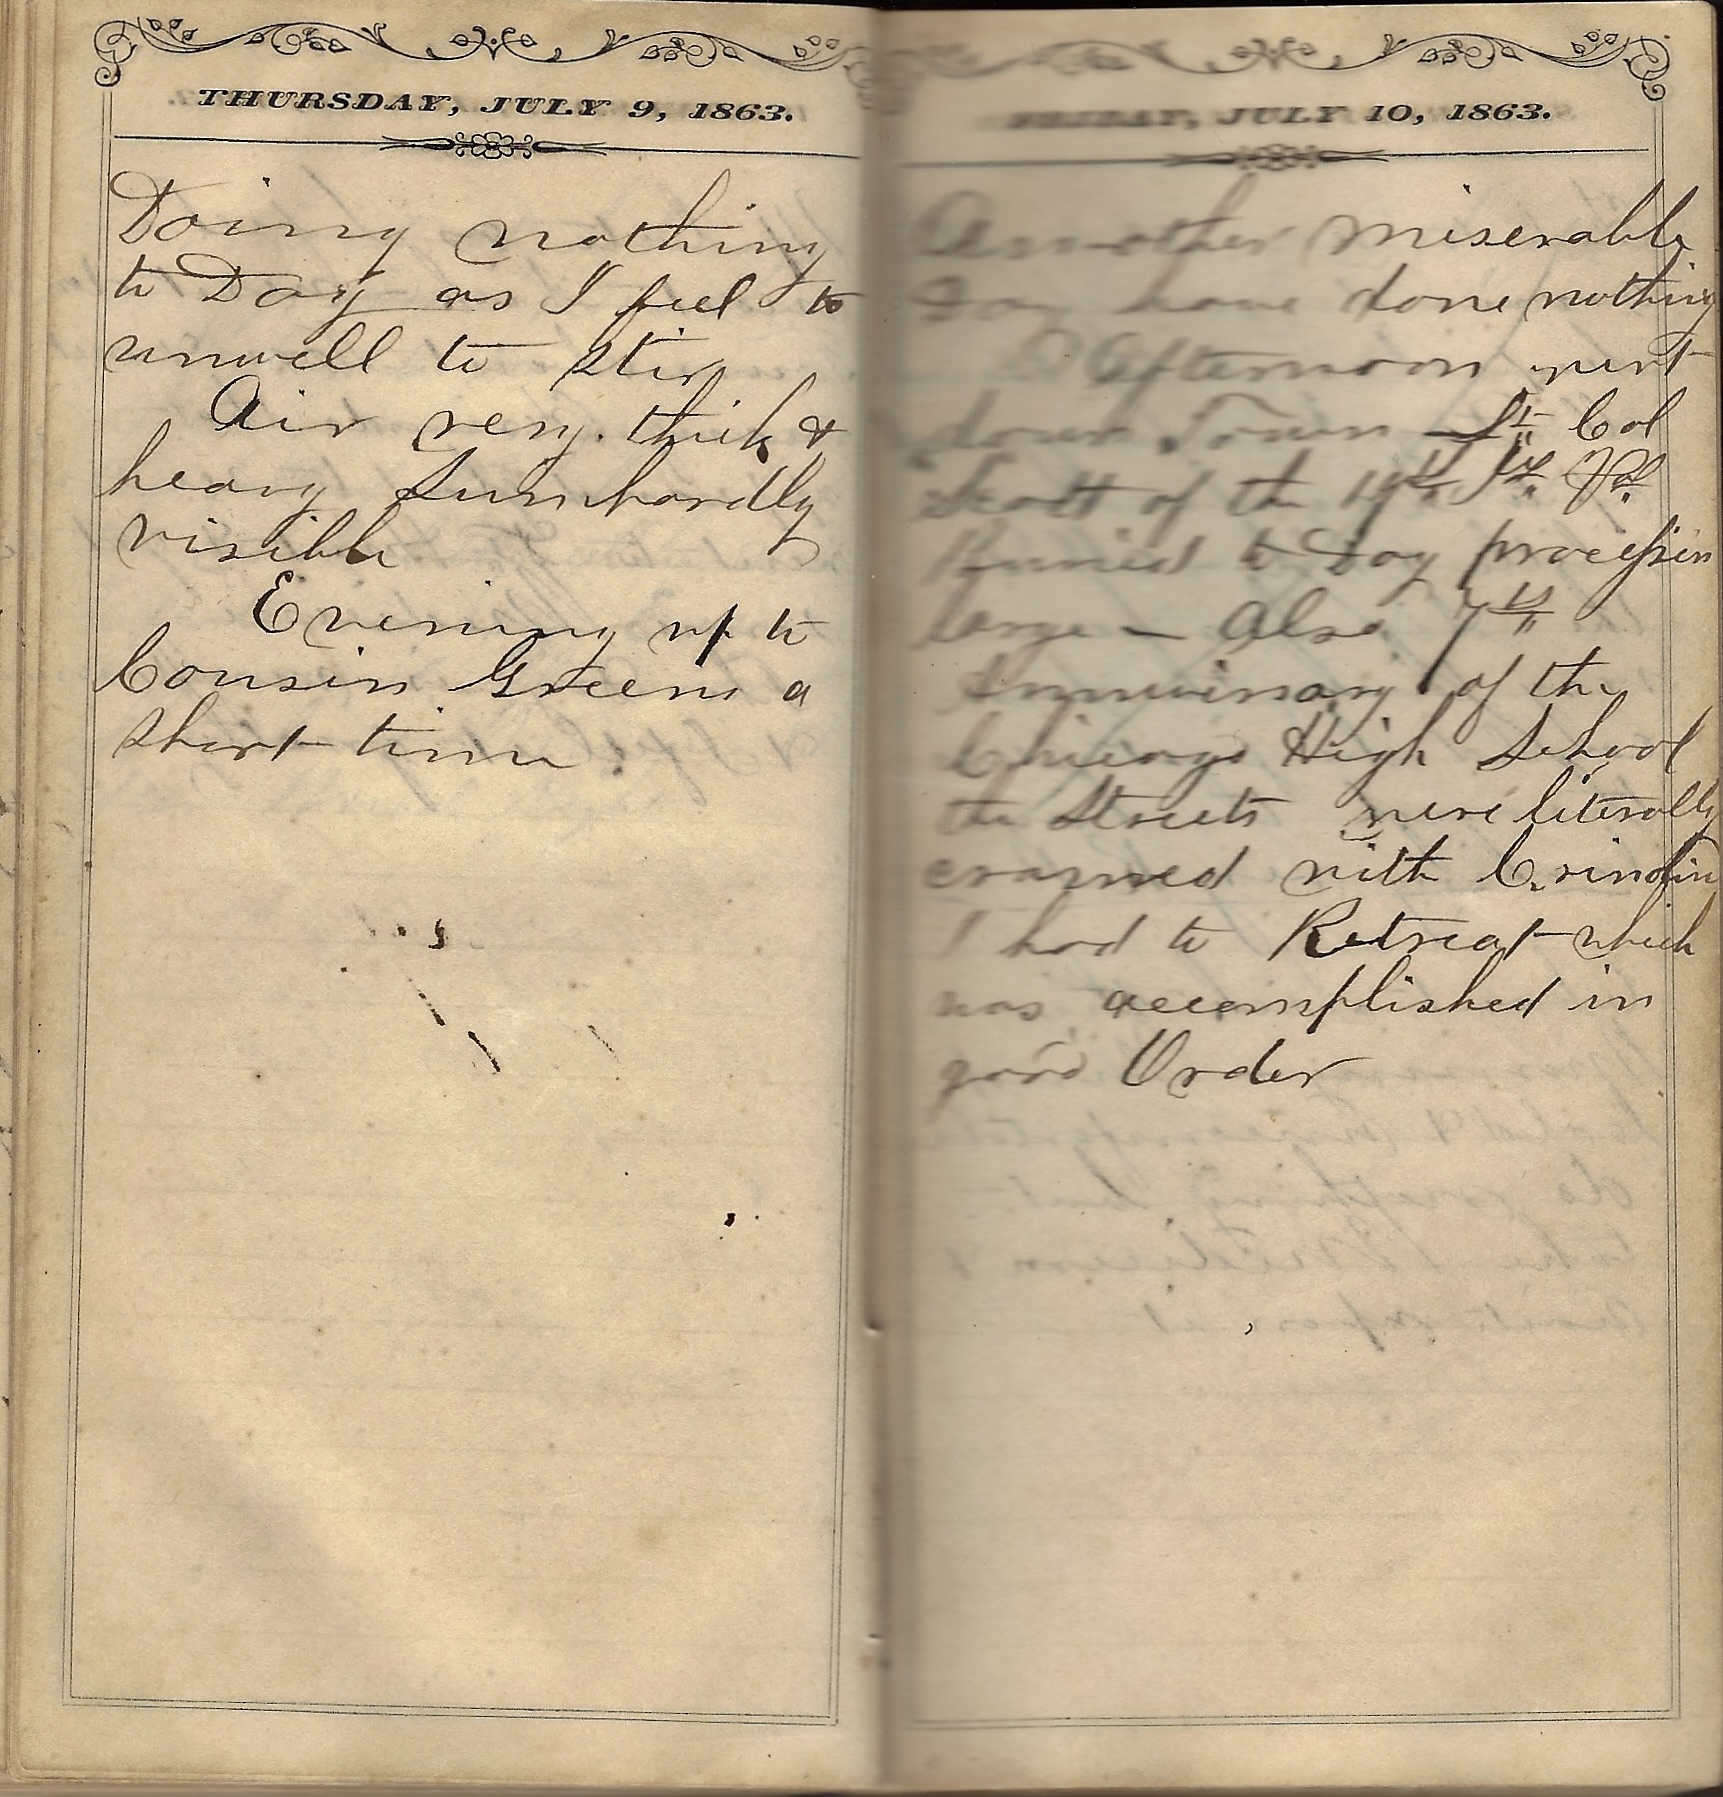 THURSDAY, JULY 9, 1863.
Doing nothing
to Day as I feel to
unwell to stir
Air very thick &
heavy Sun hardly
visible
Evening up to
Cousin Greens a
short time
FRIDAY, JULY 10, 1863.
Another miserable
Day have done nothing
Afternoon went
down Town Lt Col
Scott of the 19th Ill Vol
Buried to Day procession
large — Also 7th
Anniversary of the
Chicago High School
the Streets were literally
cramed with
I had to Retreat which
was accomplished in
good Order